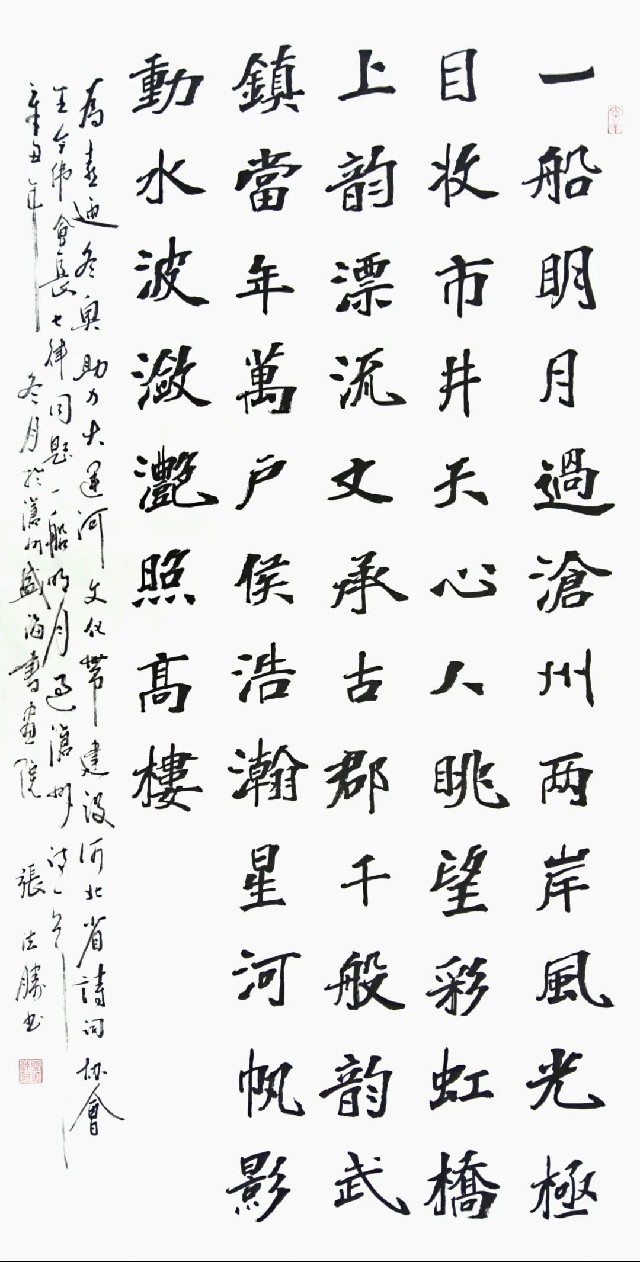 一船明月過滄州两岸風光極
目收市井天心人眺望彩虹橋
上韵漂流文承古郡千般韵武
鎮當年萬户侯浩瀚星河帆影
動水波瀲灧照高樓
為喜迎冬奥助力大運河文化帶建設河北省詩词协會
王会伟會長七律同題一船明月过滄州诗一首
辛丑年冬月於滄州盛海書畫院 張法勝书